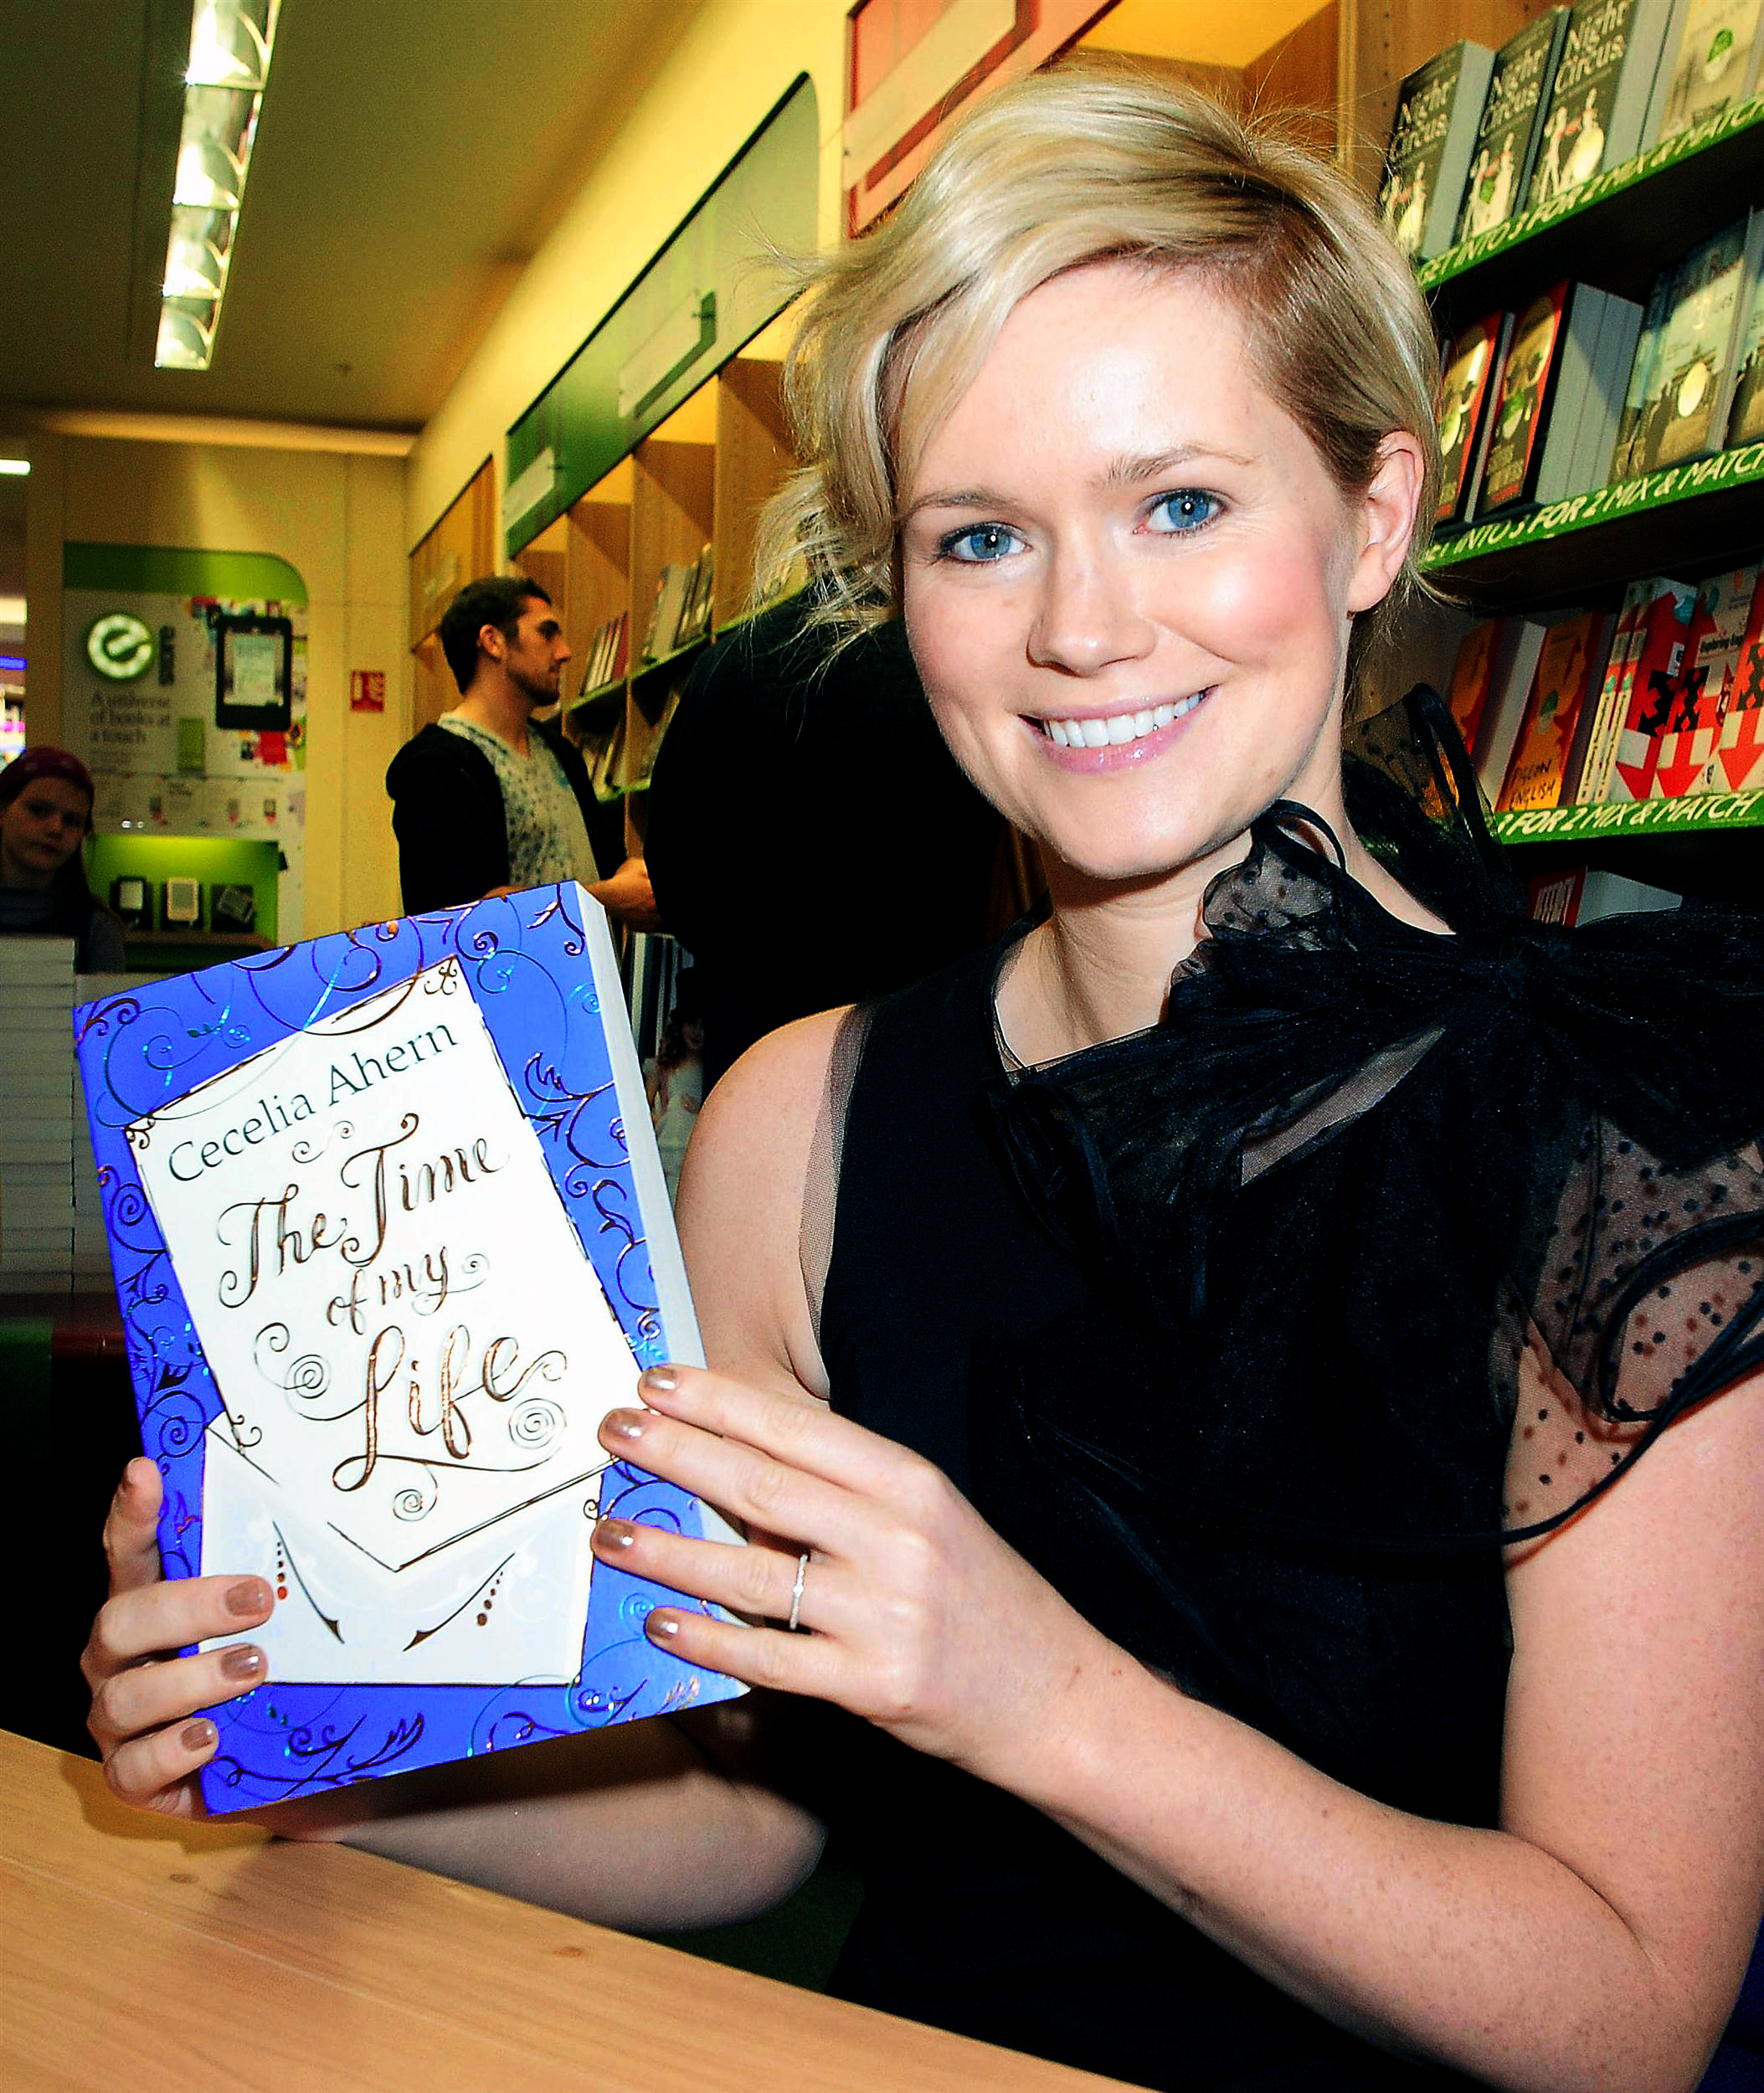 Night
Circus
Night
Circus
Night
Circus
GET INTO 3 FOR 2 MIX & MATCH
GET INTO 3 FOR 2 MIX & MATCH
3 FOR 2 MIX & MATCH
PIGEON
ENGLISH
e
store
A universe
of books at
a touch
Cecelia Ahern
The Time
of my
Life